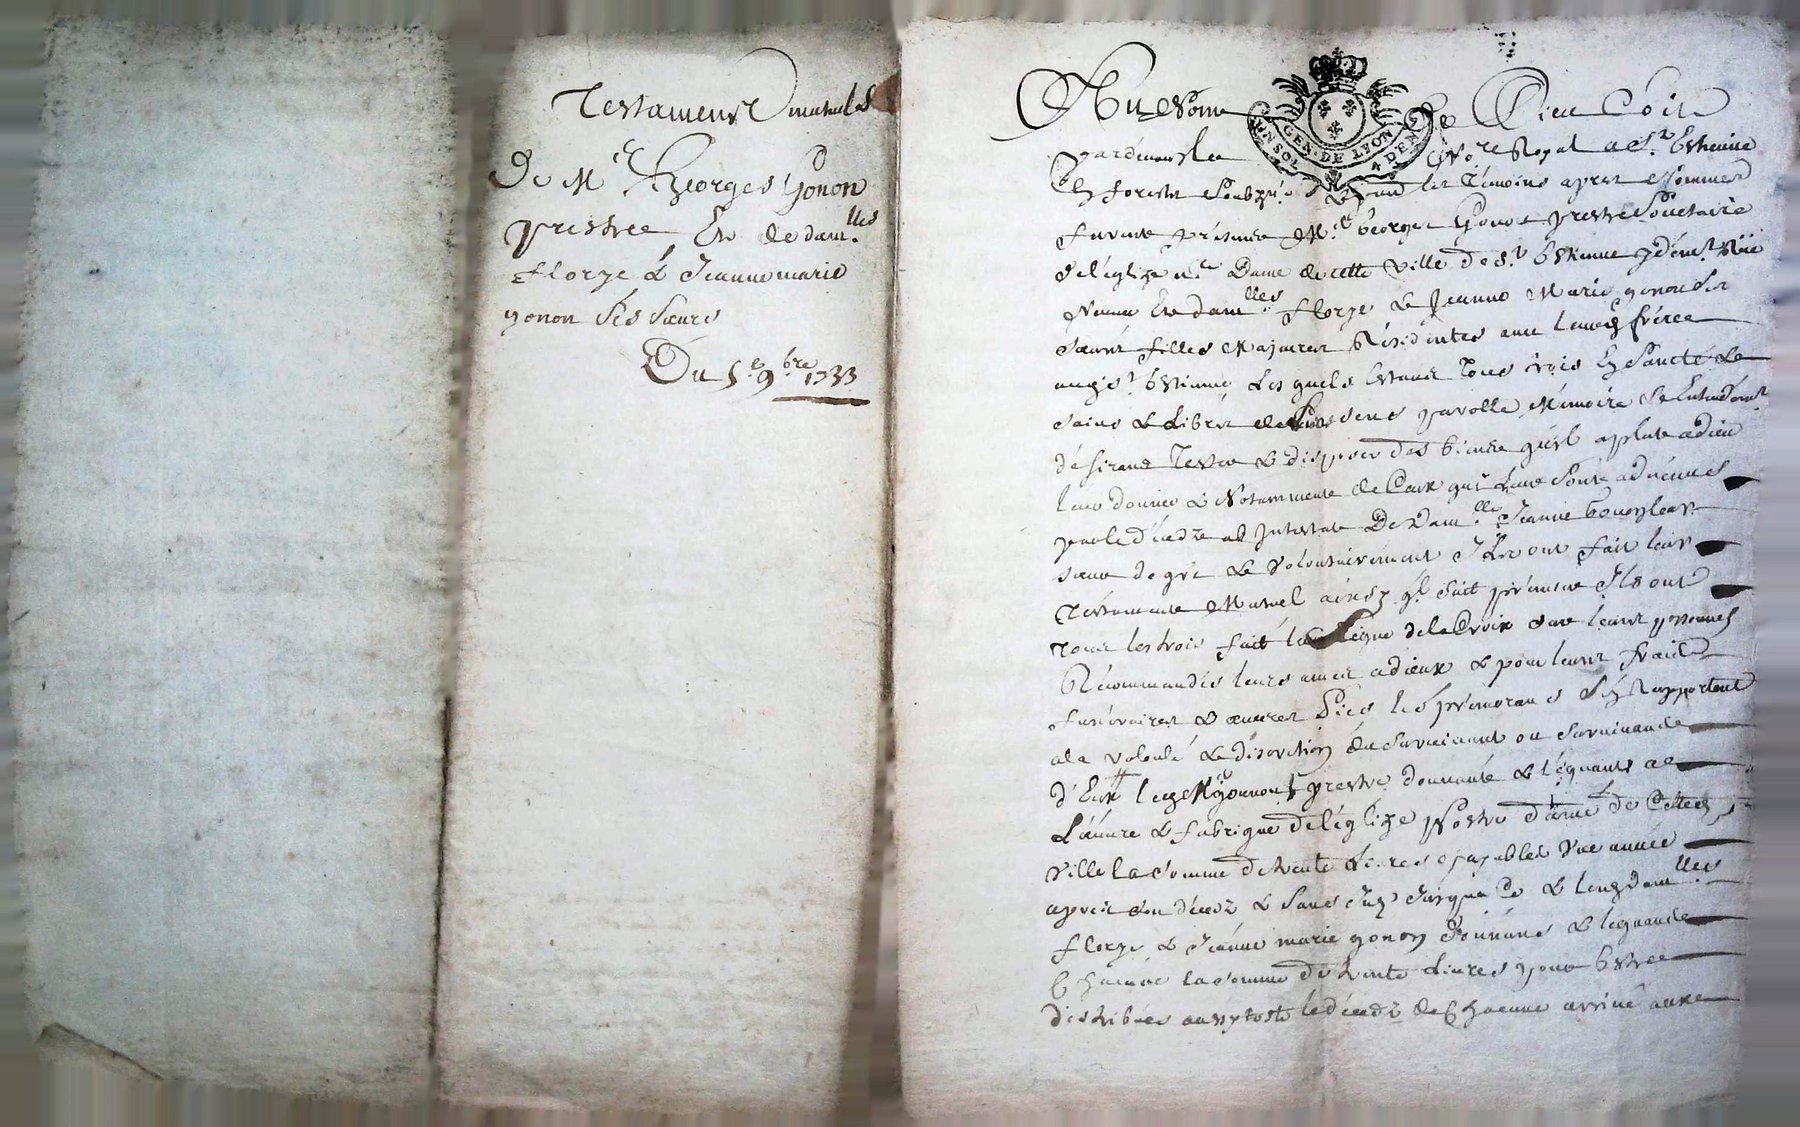 Testament mutuels
De Mre Georges Gonon
prestre Et de dam.lles
florye & Jeanne marie
gonon ses sœurs
Du 5e 9bre 1733
Au Nom de Dieu soit
UN SOL GEN. DE LYON 4 DEN.
pardevant le Nore Royal a St Estienne
En forest soubzné & les témoins apres Nommés
furent présents Mre George Gonon prestre sociétaire
de léglize nre Dame de cette ville de St Estienne
Et dam.lles florye & Jeanne Marie gonon ses
sœurs filles Majeures Résidentes avec leurd frère
aud St Estienne Lesquels Estant tous trois En Santé &
sains & Libres de sens parolle Mémoire & Entendemt
désirant Tester & disposer des biens quil a plut a dieu
leur donner & Notamment de Ceux qui Leur Sont advenus
par le décedz ab Intestat De Dam.lle Jeanne
sœur de gré & volontairement Ils ont fait leur
Testament Mutuel ainsy ql suit prémierement Ils ont
tous les trois fait le signe de la Croix sur leurs personnes
Récommandés leurs ames a dieux & pour leurs frais
funéraires & œuvres Pies Ils sen Rapportent
a la volonté & discrétion du survivant ou survivante
d'Eux led Mre gonon prestre donnant & léguant a
L'œuvre & fabrique de l'églize Nostre dame de Cette d
ville la somme de trente Livres payables une année
après son décedz & sans Intz Jusqua Ce & lesd dam.lles
florye & Jeanne marie gonon donnant & leguant
Chacune la somme de trente Livres pour Estre
distribués aussytost le décedz de Chacune arrivé aux